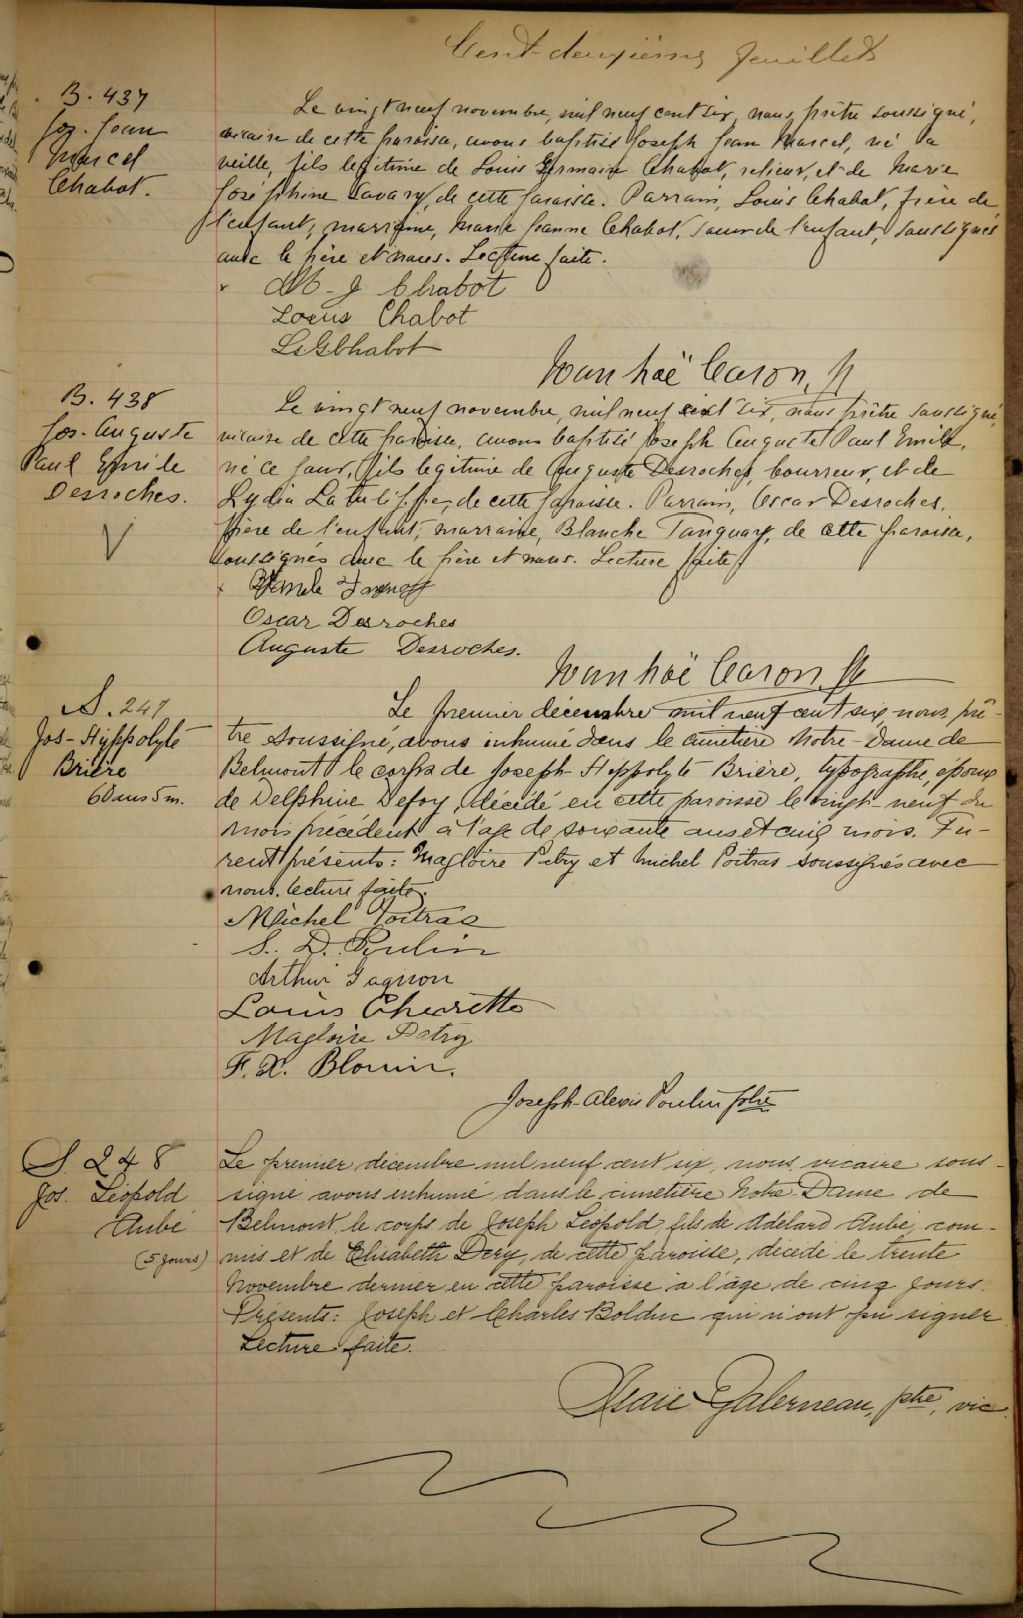 Cent-deuxième feuillet
B. 437
Jos. Jean
Marcel
Chabot.
Le vingt neuf novembre, mil neuf cent six, nous, prêtre soussigné,
vicaire de cette paroisse, avons baptisé Joseph Jean Marcel, né la
veille, fils légitime de Louis Germain Chabot, relieur, et de Marie
Joséphine Savary, de cette paroisse. Parrain, Louis Chabot, frère de
l'enfant, marraine, Marie Jeanne Chabot, soeur de l'enfant, soussignés
avec le père et nous. Lecture faite.
M-J Chabot
Louis Chabot
LsGChabot
Ivanhoë Caron, Ptre
B. 438
Jos. Auguste
Paul Emile
Desroches.
V
Le vingt neuf novembre, mil neuf cent six, nous prêtre soussigné,
vicaire de cette paroisse, avons baptisé Joseph Auguste Paul Emile,
né ce jour, fils légitime de Auguste Desroches, bourreur, et de
Lydia Latulippe, de cette paroisse. Parrain, Oscar Desroches,
frère de l'enfant, marraine, Blanche Tanguay, de cette paroisse,
soussignés avec le père et nous. Lecture faite.
Oscar Desroches
Auguste Desroches.
Ivanhoë Caron, Ptre
S. 247
Jos-Hyppolyte
Brière
60 ans 5 m.
Le premier décembre mil neuf cent six, nous, prê-
tre soussigné, avons inhumé dans le cimetière Notre-Dame de
Belmont le corps de Joseph-Hippolyte Brière, typographe, époux
de Delphine Defoy, décédé en cette paroisse le vingt-neuf du
mois précédent à l'age de soixante ans et cinq mois. Fu-
rent présents: Magloire Patry et Michel Poitras soussignés avec
nous. lecture faite.
Michel Poitras
S. D. Poulin
Arthur Gagnon
Louis Charette
Magloire Patry
F. X. Blouin.
Joseph-Alexis Poulin ptre
S. 248
Jos. Léopold
Aubé
(5 jours)
Le premier décembre mil neuf cent six, nous, vicaire sous-
signé avons inhumé dans le cimetière Notre Dame de
Belmont, le corps de Joseph Léopold, fils de Adélard Aubé, com-
mis et de Elisabeth Dery, de cette paroisse, décédé le trente
Novembre dernier en cette paroisse à l'âge de cinq jours.
Présents: Joseph et Charles Bolduc qui n'ont pu signer
Lecture faite.
Isaïe Galerneau, ptre, vic.